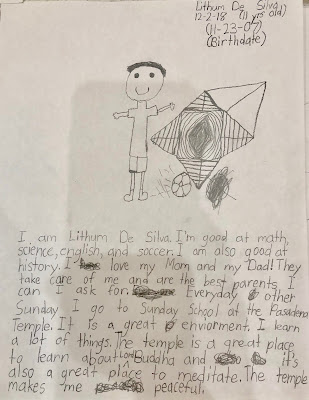 Lithum De Silva
12-2-18 (11 yrs old)
(11-23-07)
(Birthdate)
I am Lithum De Silva. I'm good at math,
science, english, and soccer. I am also good at
history. I love my Mom and my Dad! They
take care of me and are the best parents I
can I ask for. Everyday other
Sunday I go to Sunday School at the Pasadena
Temple. It is a great enviorment. I learn
a lot of things. The temple is a great place
to learn about Lord Buddha and it's
also a great place to meditate. The temple
makes me peaceful.